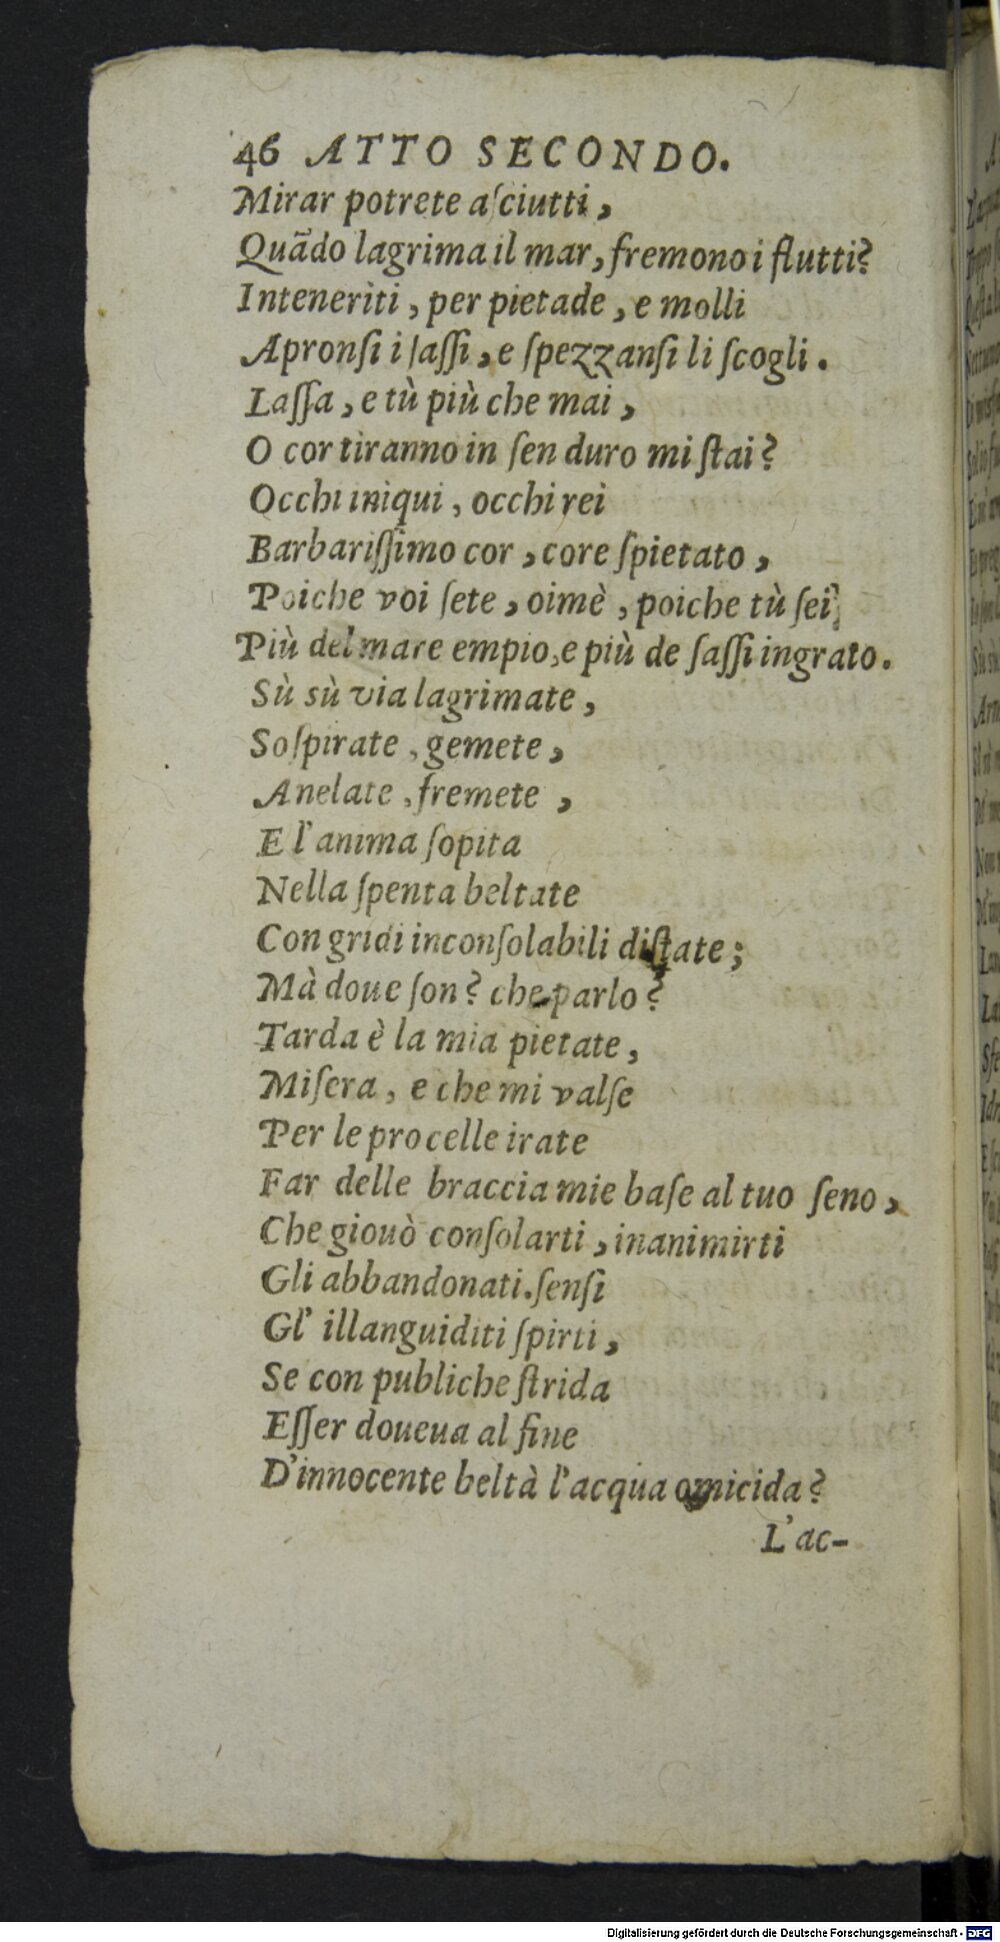 46 ATTO SECONDO.
Mirar potrete aſciutti,
Quãdo lagrima il mar, fremono i flutti?
Inteneriti, per pietade, e molli
Apronſi i ſaſſi, e ſpezzanſi li ſcogli.
Laſſa, e tù più che mai,
O cor tiranno in ſen duro mi ſtai?
Occhi iniqui, occhi rei
Barbariſſimo cor, core ſpietato,
Poiche voi ſete, oimè, poiche tù ſei
Più del mare empio, e più de ſaſſi ingrato.
Sù sù via lagrimate,
Soſpirate, gemete,
Anelate, fremete,
E l'anima ſopita
Nella ſpenta beltate
Con gridi inconſolabili diſtate;
Mà doue ſon? che parlo?
Tarda è la mia pietate,
Miſera, e che mi valſe
Per le procelle irate
Far delle braccia mie baſe al tuo ſeno,
Che giouò conſolarti, inanimirti
Gli abbandonati. ſenſi
Gl' illanguiditi ſpirti,
Se con publiche ſtrida
Eſſer doueua al fine
D'innocente beltà l'acqua omicida?
L'ac-
Digitalisierung gefördert durch die Deutsche Forschungsgemeinschaft - DFG